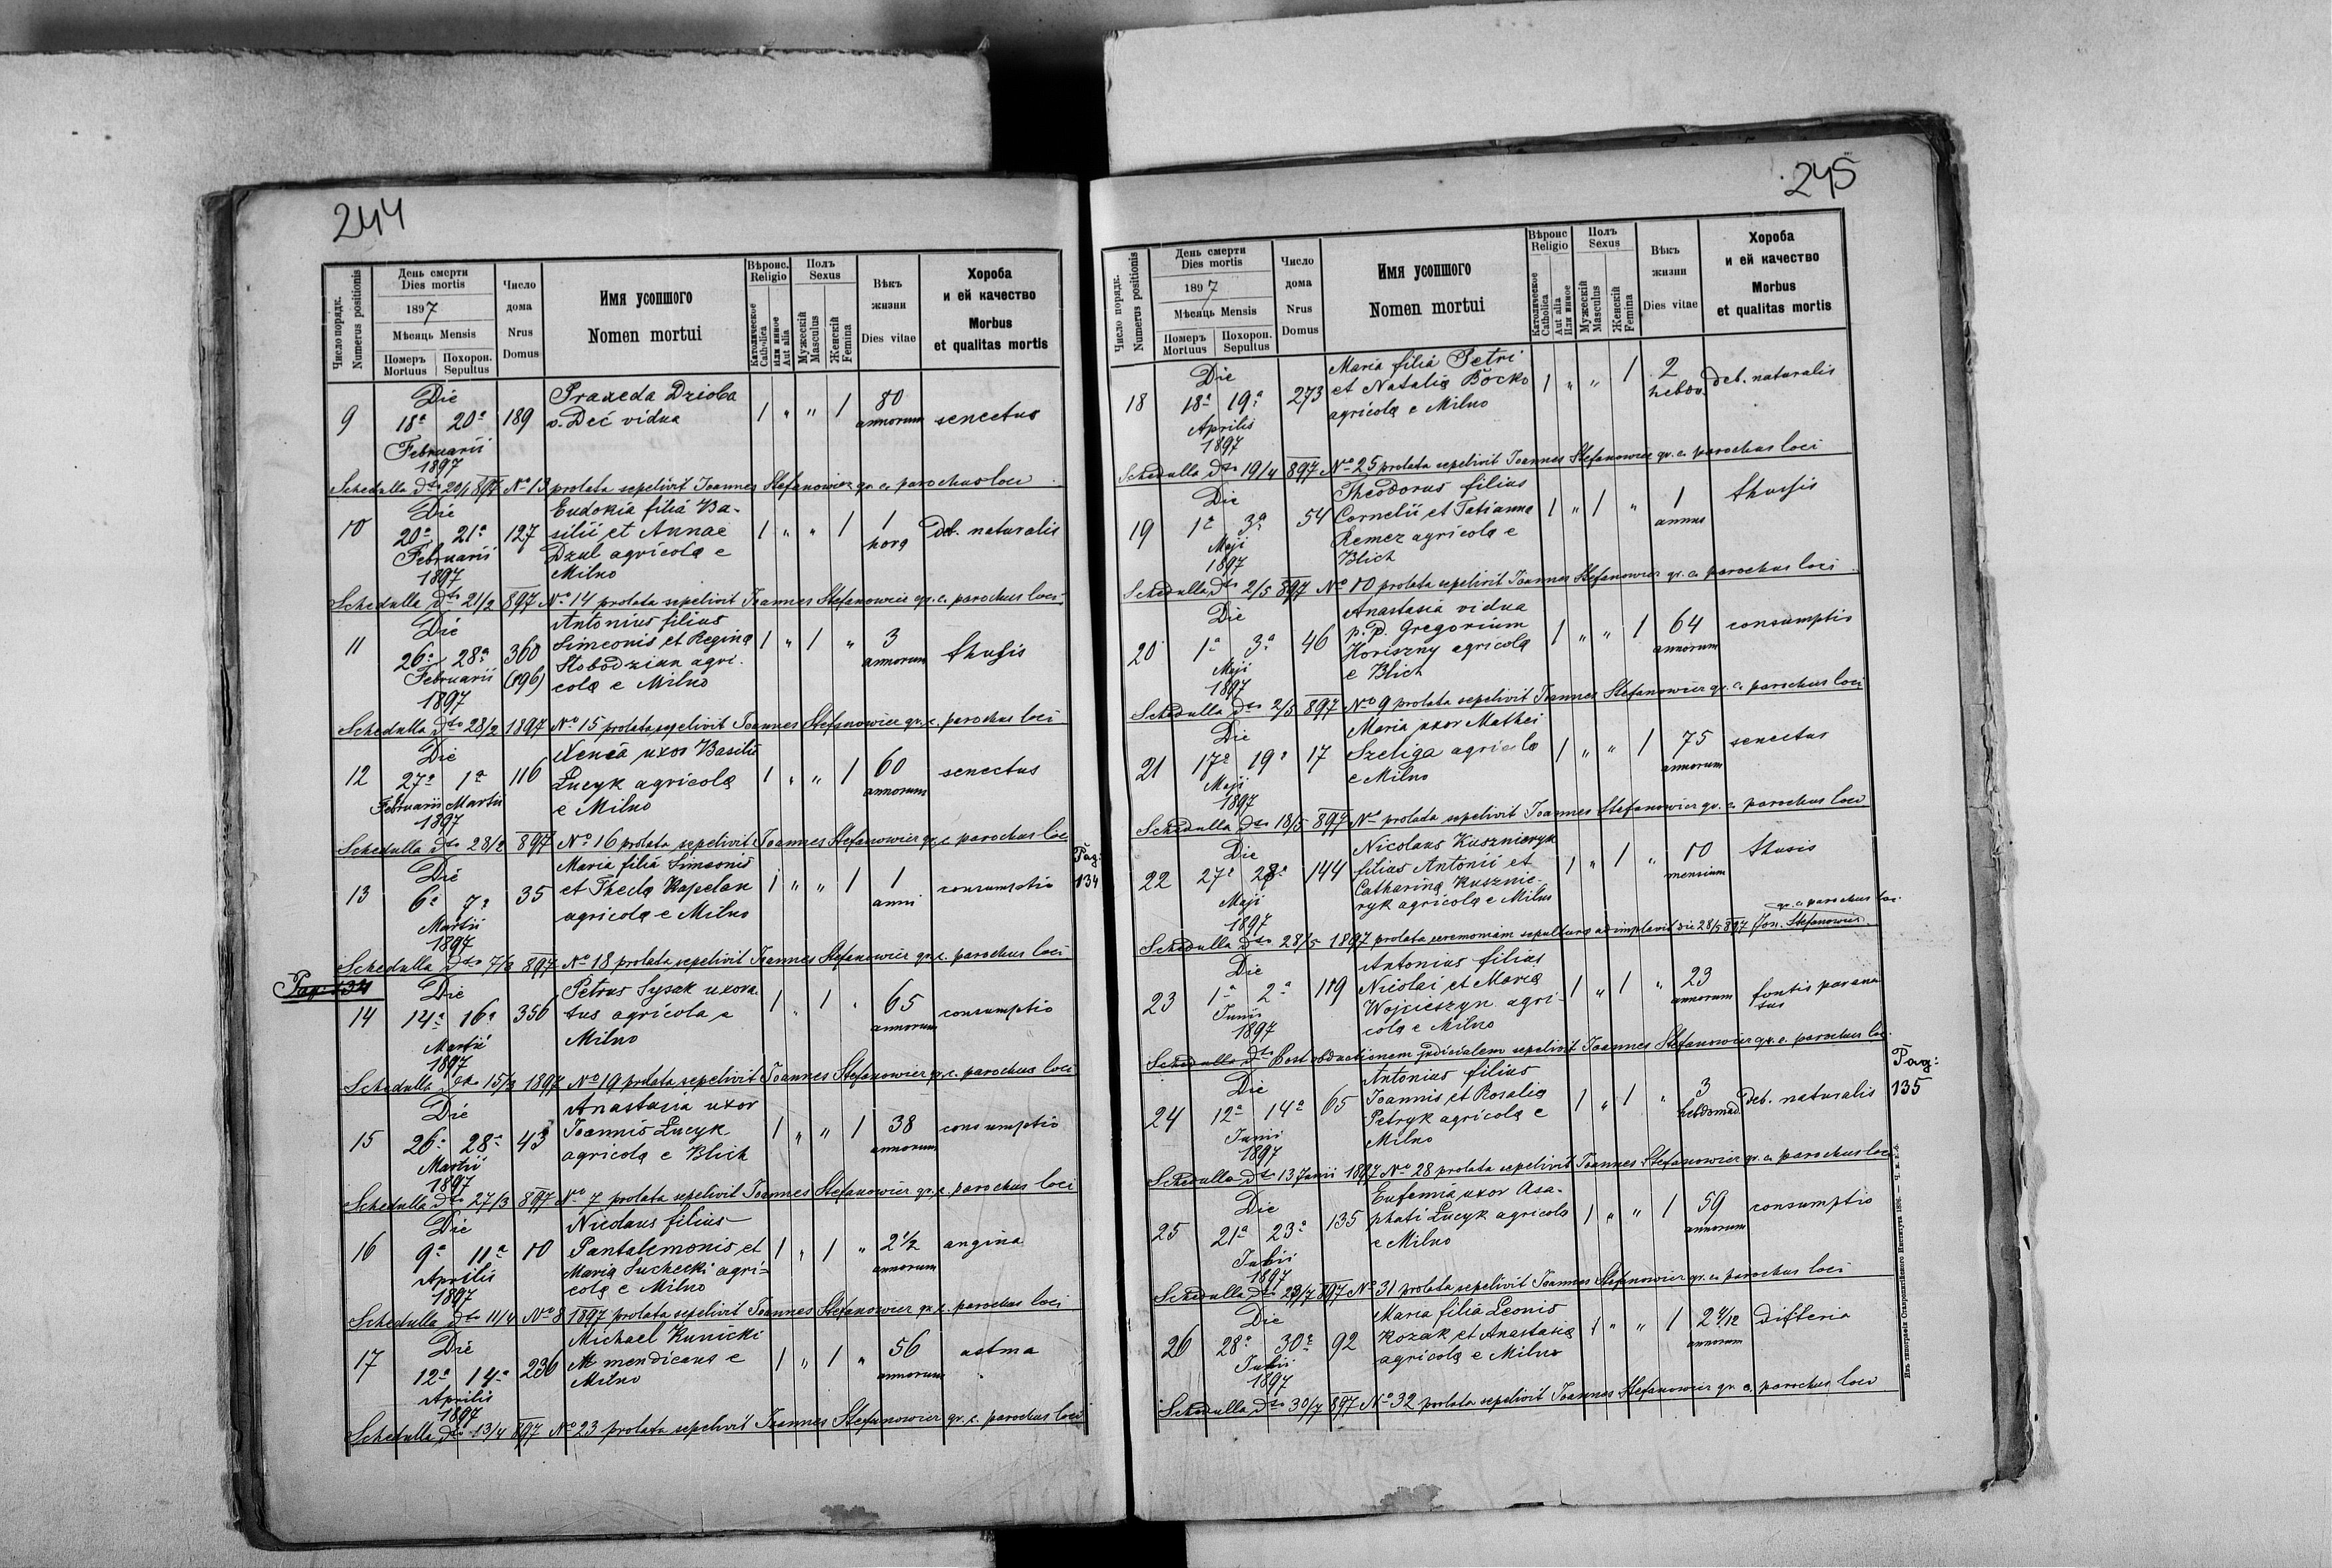 244
Число порядк.
Numerus positionis
День смерти
Dies mortis
1897
Мѣсяць Mensis
Померъ Mortuus
Похорон. Sepultus
Число дома
Nrus Domus
Имя усопшого
Nomen mortui
Вѣроис. Religio
Католическое Catholica
или иное Aut alia
Полъ Sexus
Мужескій Masculus
Женскій Femina
Вѣкъ жизни
Dies vitae
Хороба
и ей качество
Morbus
et qualitas mortis
Die
Praxeda Dzioba
9 18ª 20ª 189 v. Deć vidua 1 " " 1 80 annorum senectus
Februarii
1897
Schedulla dto 897 No 13 prolata sepelivit Joannes Stefanowicz gr. c. parochus loci
Die
Eudokia filia Ba-
10 20ª 21ª 127 silii et Annae 1 " " 1 1 hora deb. naturalis
Februarii Dzul agricola e
1897 Milno
Schedulla dto 21/2 897 No 14 prolata sepelivit Joannes Stefanowicz gr. c. parochus loci
Die Antonius filius
11 26ª 28ª 360 Simeonis et Regina 1 " 1 " 3 annorum thusis
Februarii (196) Slobodzian agri-
1897 cola e Milno
Schedulla dto 28/2 1897 No 15 prolata sepelivit Joannes Stefanowicz gr. c. parochus loci
Die Xenia uxor Basilii
12 27ª 1ª 116 Łucyk agricola 1 " " 1 60 annorum senectus
Februarii Martii e Milno
1897
Schedulla dto 28/2 897 No 16 prolata sepelivit Joannes Stefanowicz gr. c. parochus loci
Die Maria filia Simeonis
13 6ª 7ª 35 et Thecla Kapelan 1 " " 1 1 anni consumptio
Pag: 134
Martii agricola e Milno
1897
Schedulla dto 7/3 897 No 18 prolata sepelivit Joannes Stefanowicz gr. c. parochus loci
Pag: 134
Die Petrus Sysak uxora-
14 14ª 16ª 356 tus agricola e 1 " 1 " 65 annorum consumptio
Martii Milno
1897
Schedulla dto 15/3 1897 No 19 prolata sepelivit Joannes Stefanowicz gr. c. parochus loci
Die Anastasia uxor
15 26ª 28ª 43 Joannis Łucyk 1 " " 1 38 annorum consumptio
Martii agricola e Blich
1897
Schedulla dto 27/3 897 No 7 prolata sepelivit Joannes Stefanowicz gr. c. parochus loci
Die Nicolaus filius
16 9ª 11ª 10 Pantalemonis et 1 " 1 " 2 1/2 annorum angina
Aprilis Maria Suchecki agri-
1897 cola e Milno
Schedulla dto 11/4 No 8 1897 prolata sepelivit Joannes Stefanowicz gr. c. parochus loci
Die Michael Kunicki
17 12ª 14ª 236 mendicans e 1 " 1 " 56 annorum astma
Aprilis Milno
1897
Schedulla dto 13/4 897 No 23 prolata sepelivit Joannes Stefanowicz gr. c. parochus loci
245
Число порядк.
Numerus positionis
День смерти
Dies mortis
1897
Мѣсяць Mensis
Померъ Mortuus
Похорон. Sepultus
Число дома
Nrus Domus
Имя усопшого
Nomen mortui
Вѣроис Religio
Католическое Catholica
Aut alia
Или иное
Полъ Sexus
Мужескій Masculus
Женскій Femina
Вѣкъ жизни
Dies vitae
Хороба
и ей качество
Morbus
et qualitas mortis
Die Maria filia Petri
18 18ª 19ª 273 et Natalia Bocko 1 " " 1 2 hebdo. deb. naturalis
Aprilis agricola e Milno
1897
Schedulla dto 19/4 897 No 25 prolata sepelivit Joannes Stefanowicz gr. c. parochus loci
Die Theodorus filius
19 1ª 3ª 54 Cornelii et Tatianna 1 " 1 " 1 annus thussis
Maji Remez agricola e
1897 Blich
Schedulla dto 2/5 897 No 10 prolata sepelivit Joannes Stefanowicz gr. c. parochus loci
Die Anastasia vidua
20 1ª 3ª 46 p. p. Gregorium 1 " " 1 64 annorum consumptio
Maji Horiszny agricola
1897 e Blich
Schedulla dto 2/5 897 No 9 prolata sepelivit Joannes Stefanowicz gr. c. parochus loci
Die Maria uxor Mathei
21 17ª 19ª 17 Szeliga agricola 1 " " 1 75 annorum senectus
Maji e Milno
1897
Schedulla dto 18/5 897 No prolata sepelivit Joannes Stefanowicz gr. c. parochus loci
Die Nicolaus Kusznieryk
22 27ª 28ª 144 filius Antonii et 1 " 1 " 10 mensium thusis
Maji Catharina Kusznie-
1897 ryk agricola e Milno
gr. c. parochus loci
Schedulla dto 28/5 1897 prolata ceremoniam sepultura adimplavit die 28/5 897 Jon. Stefanowicz
Die Antonius filius
23 1ª 2ª 119 Nicolai et Maria 1 " 1 " 23 annorum
Junii Wojcieszyn agri-
1897 cola e Milno
Schedulla dto Post obductionem judicialem sepelivit Joannes Stefanowicz gr. c. parochus loci
Die Antonius filius
24 12ª 14ª 65 Joannis et Rosalia 1 " 1 " 3 hebdomad. deb. naturalis
Pag: 135
Junii Petryk agricola e
1897 Milno
Schedulla dto 13 Junii 1897 No 28 prolata sepelivit Joannes Stefanowicz gr. c. parochus loci
Die Eufemia uxor Asa-
25 21ª 23ª 135 phati Łucyk agricola 1 " " 1 59 annorum consumptio
Julii e Milno
1897
Schedulla dto 23/7 897 No 31 prolata sepelivit Joannes Stefanowicz gr. c. parochus loci
Die Maria filia Leonis
26 28ª 30ª 92 Kozak et Anastasia 1 " " 1 annorum difteria
Julii agricola e Milno
1897
Schedulla dto 30/7 897 No 32 prolata sepelivit Joannes Stefanowicz gr. c. parochus loci
Изъ типографіи Ставропигійского Института